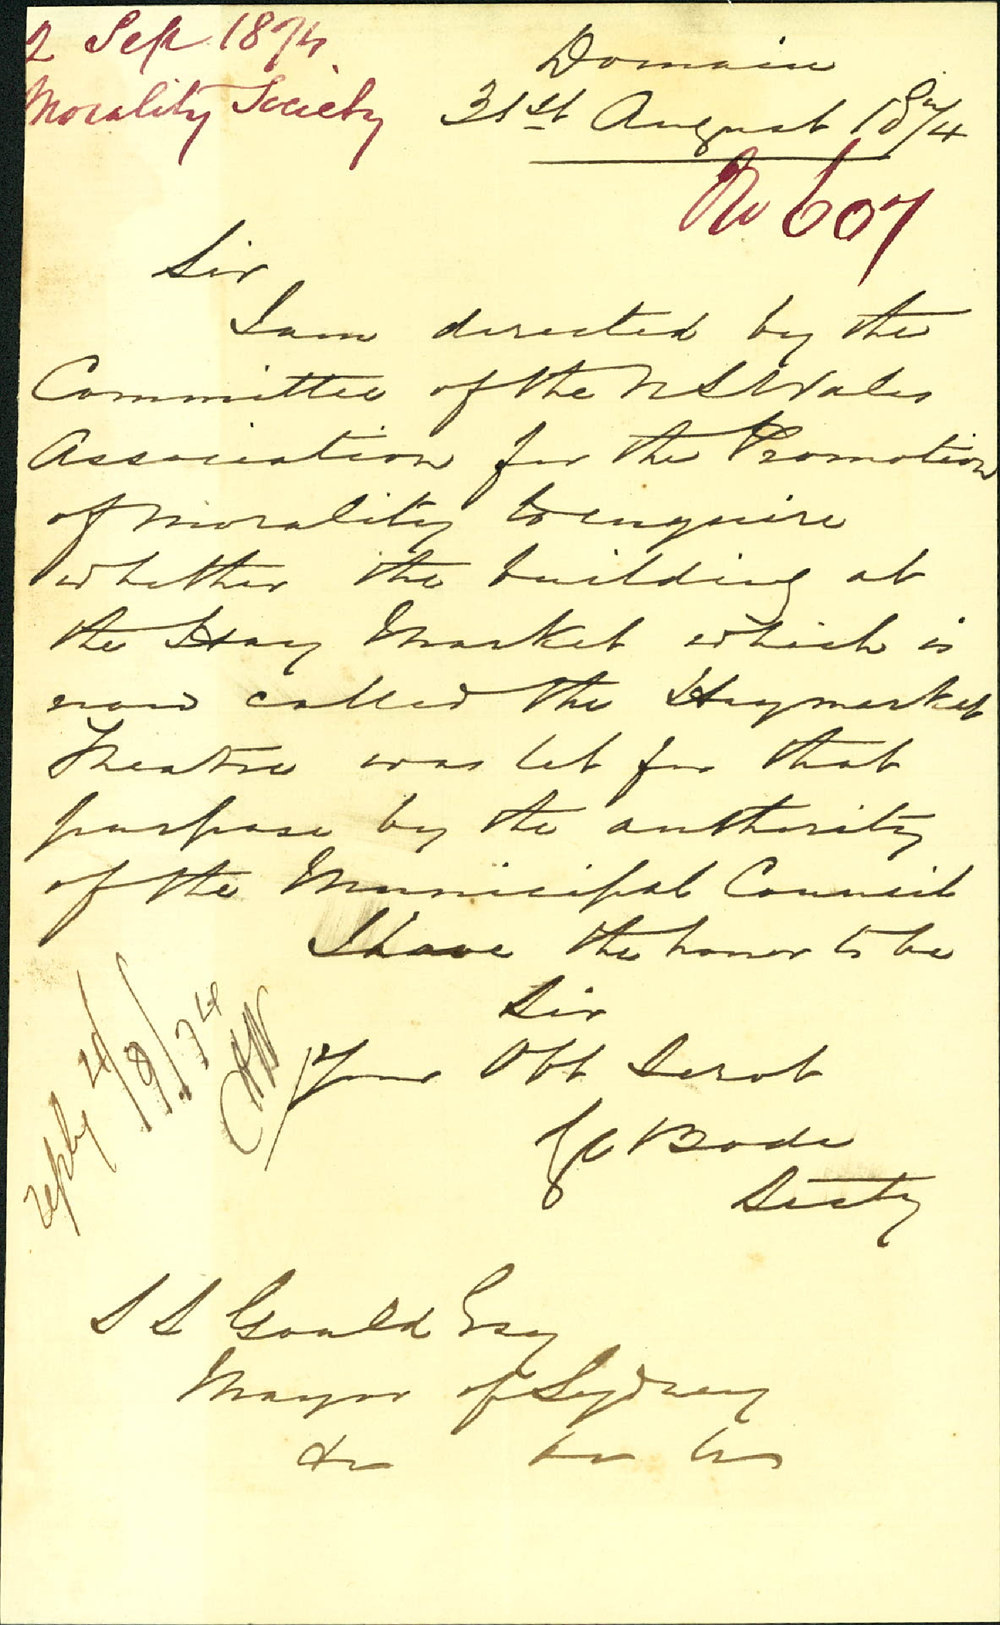 2 Sep 1874
Morality Society
Domain
31st August 1874
No 607
Sir
I am directed by the
Committee of the N S Wales
Association for the Promotion
of Morality to enquire
whether the building at
the Hay Market which is
now called the Haymarket
Theatre was let for that
purpose by the authority
of the Municipal Council
I have the honor to be
Sir
Your Obt Servt
G C Bode
Secty
reply 4/9/74
S S Goold Esq
Mayor of Sydney
&c &c &c